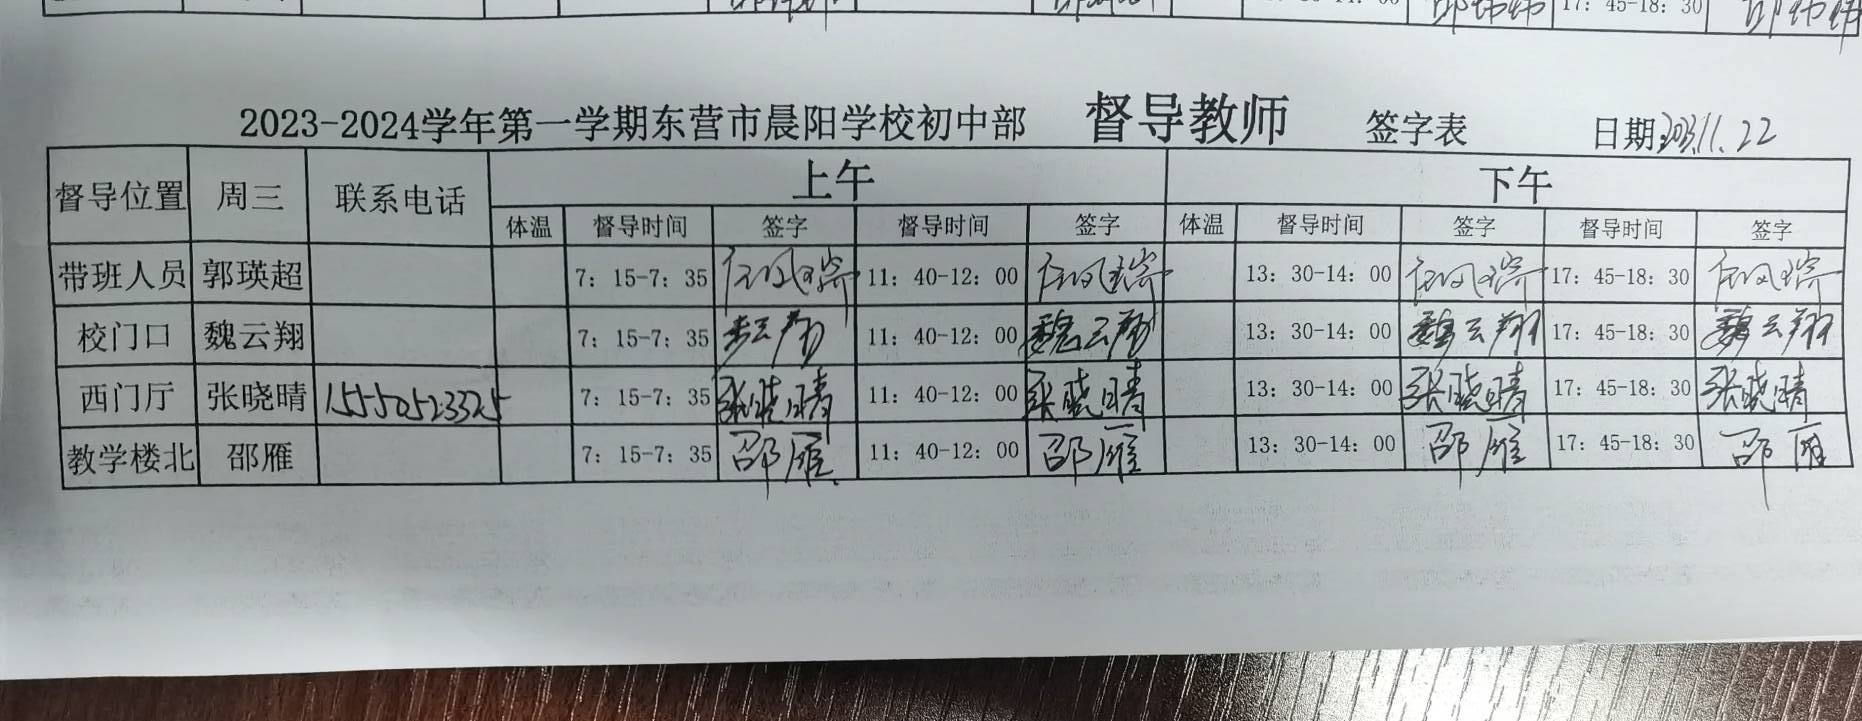 17: 45-18: 30
2023-2024学年第一学期东营市晨阳学校初中部 督导教师 签字表 日期 2023.11.22
督导位置 周三 联系电话 上午 下午
体温 督导时间 签字 督导时间 签字 体温 督导时间 签字 督导时间 签字
带班人员 郭瑛超 7: 15-7: 35 11: 40-12: 00 13: 30-14: 00 17: 45-18: 30
校门口 魏云翔 7: 15-7: 35 魏云翔 11: 40-12: 00 魏云翔 13: 30-14: 00 魏云翔 17: 45-18: 30 魏云翔
西门厅 张晓晴 15550523325 7: 15-7: 35 张晓晴 11: 40-12: 00 张晓晴 13: 30-14: 00 张晓晴 17: 45-18: 30 张晓晴
教学楼北 邵雁 7: 15-7: 35 邵雁 11: 40-12: 00 邵雁 13: 30-14: 00 邵雁 17: 45-18: 30 邵雁